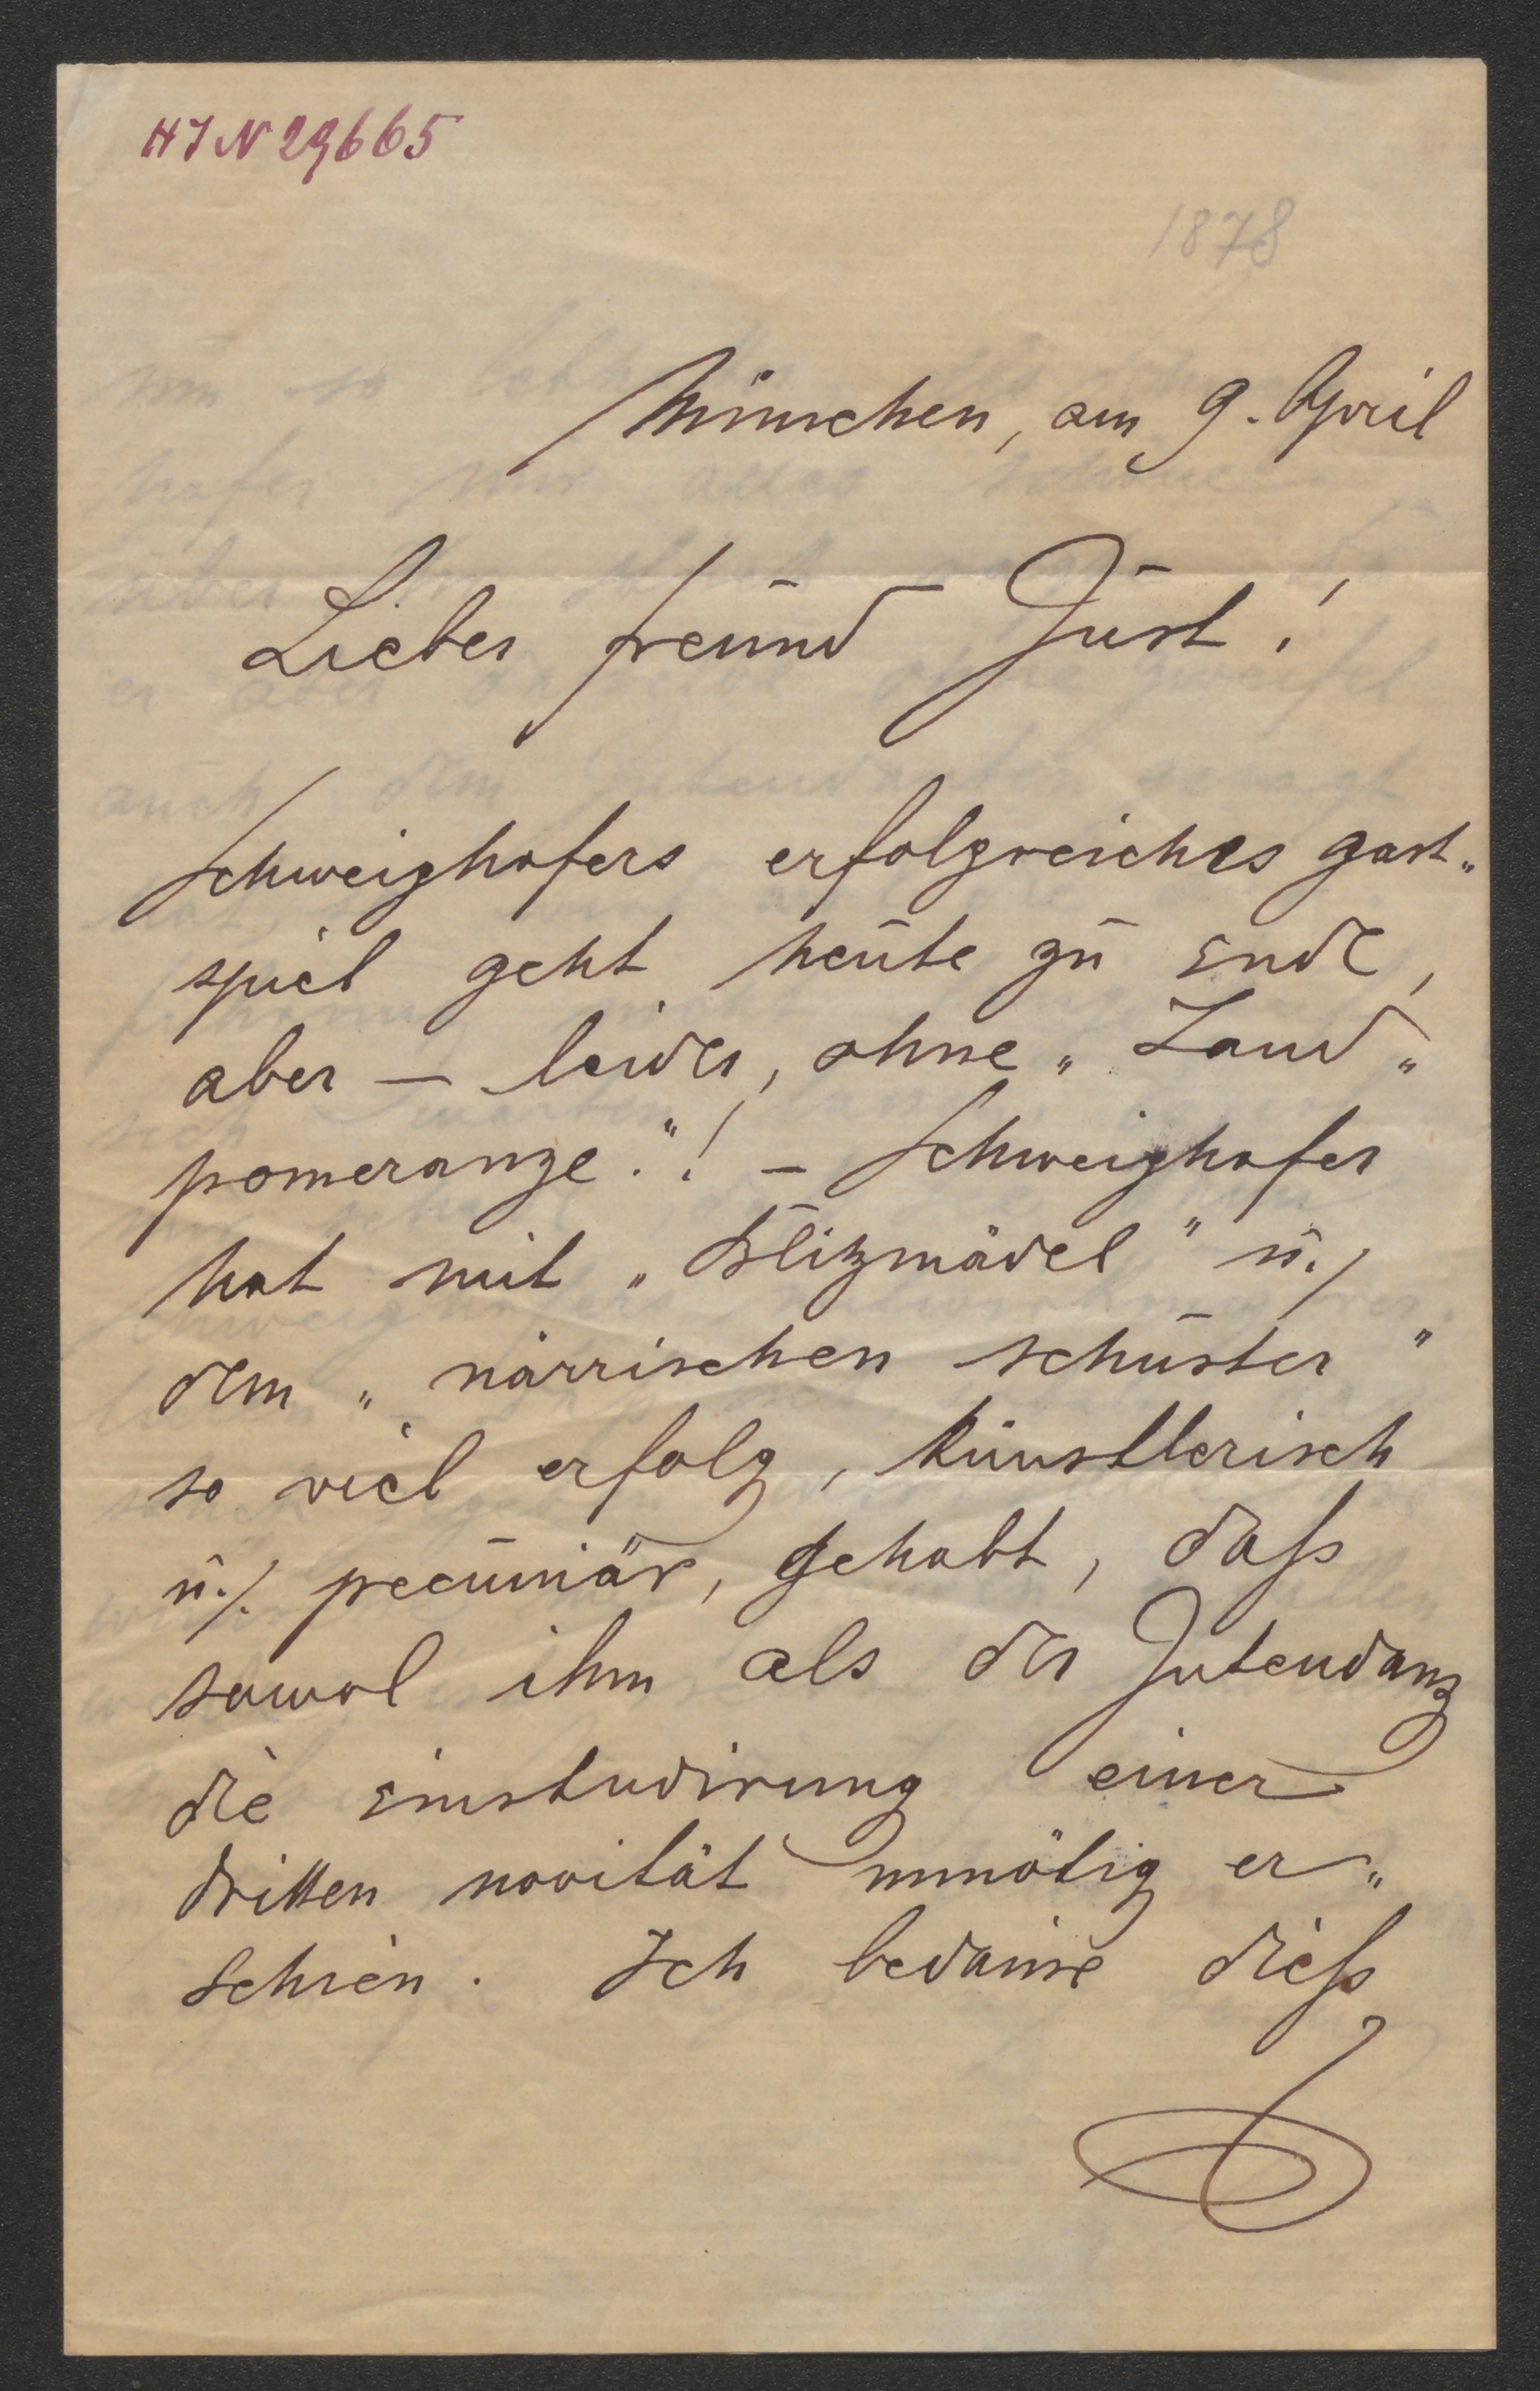 HJN 29665
1878
München, am 9. April
Lieber freund Just!
Schweighofers erfolgreiches gast„
spiel geht heute zu Ende,
aber – leider, ohne „Land„
pomeranze."! – Schweighofer
hat mit „Blitzmädel" u./
dem „närrischen schuster"
so viel erfolg, künstlerisch
u./. pecuniär, gehabt, daß
sowol ihm als der Intendanz
die Einstudirung einer
dritten novität unnötig er„
schien. Ich bedaure dieß